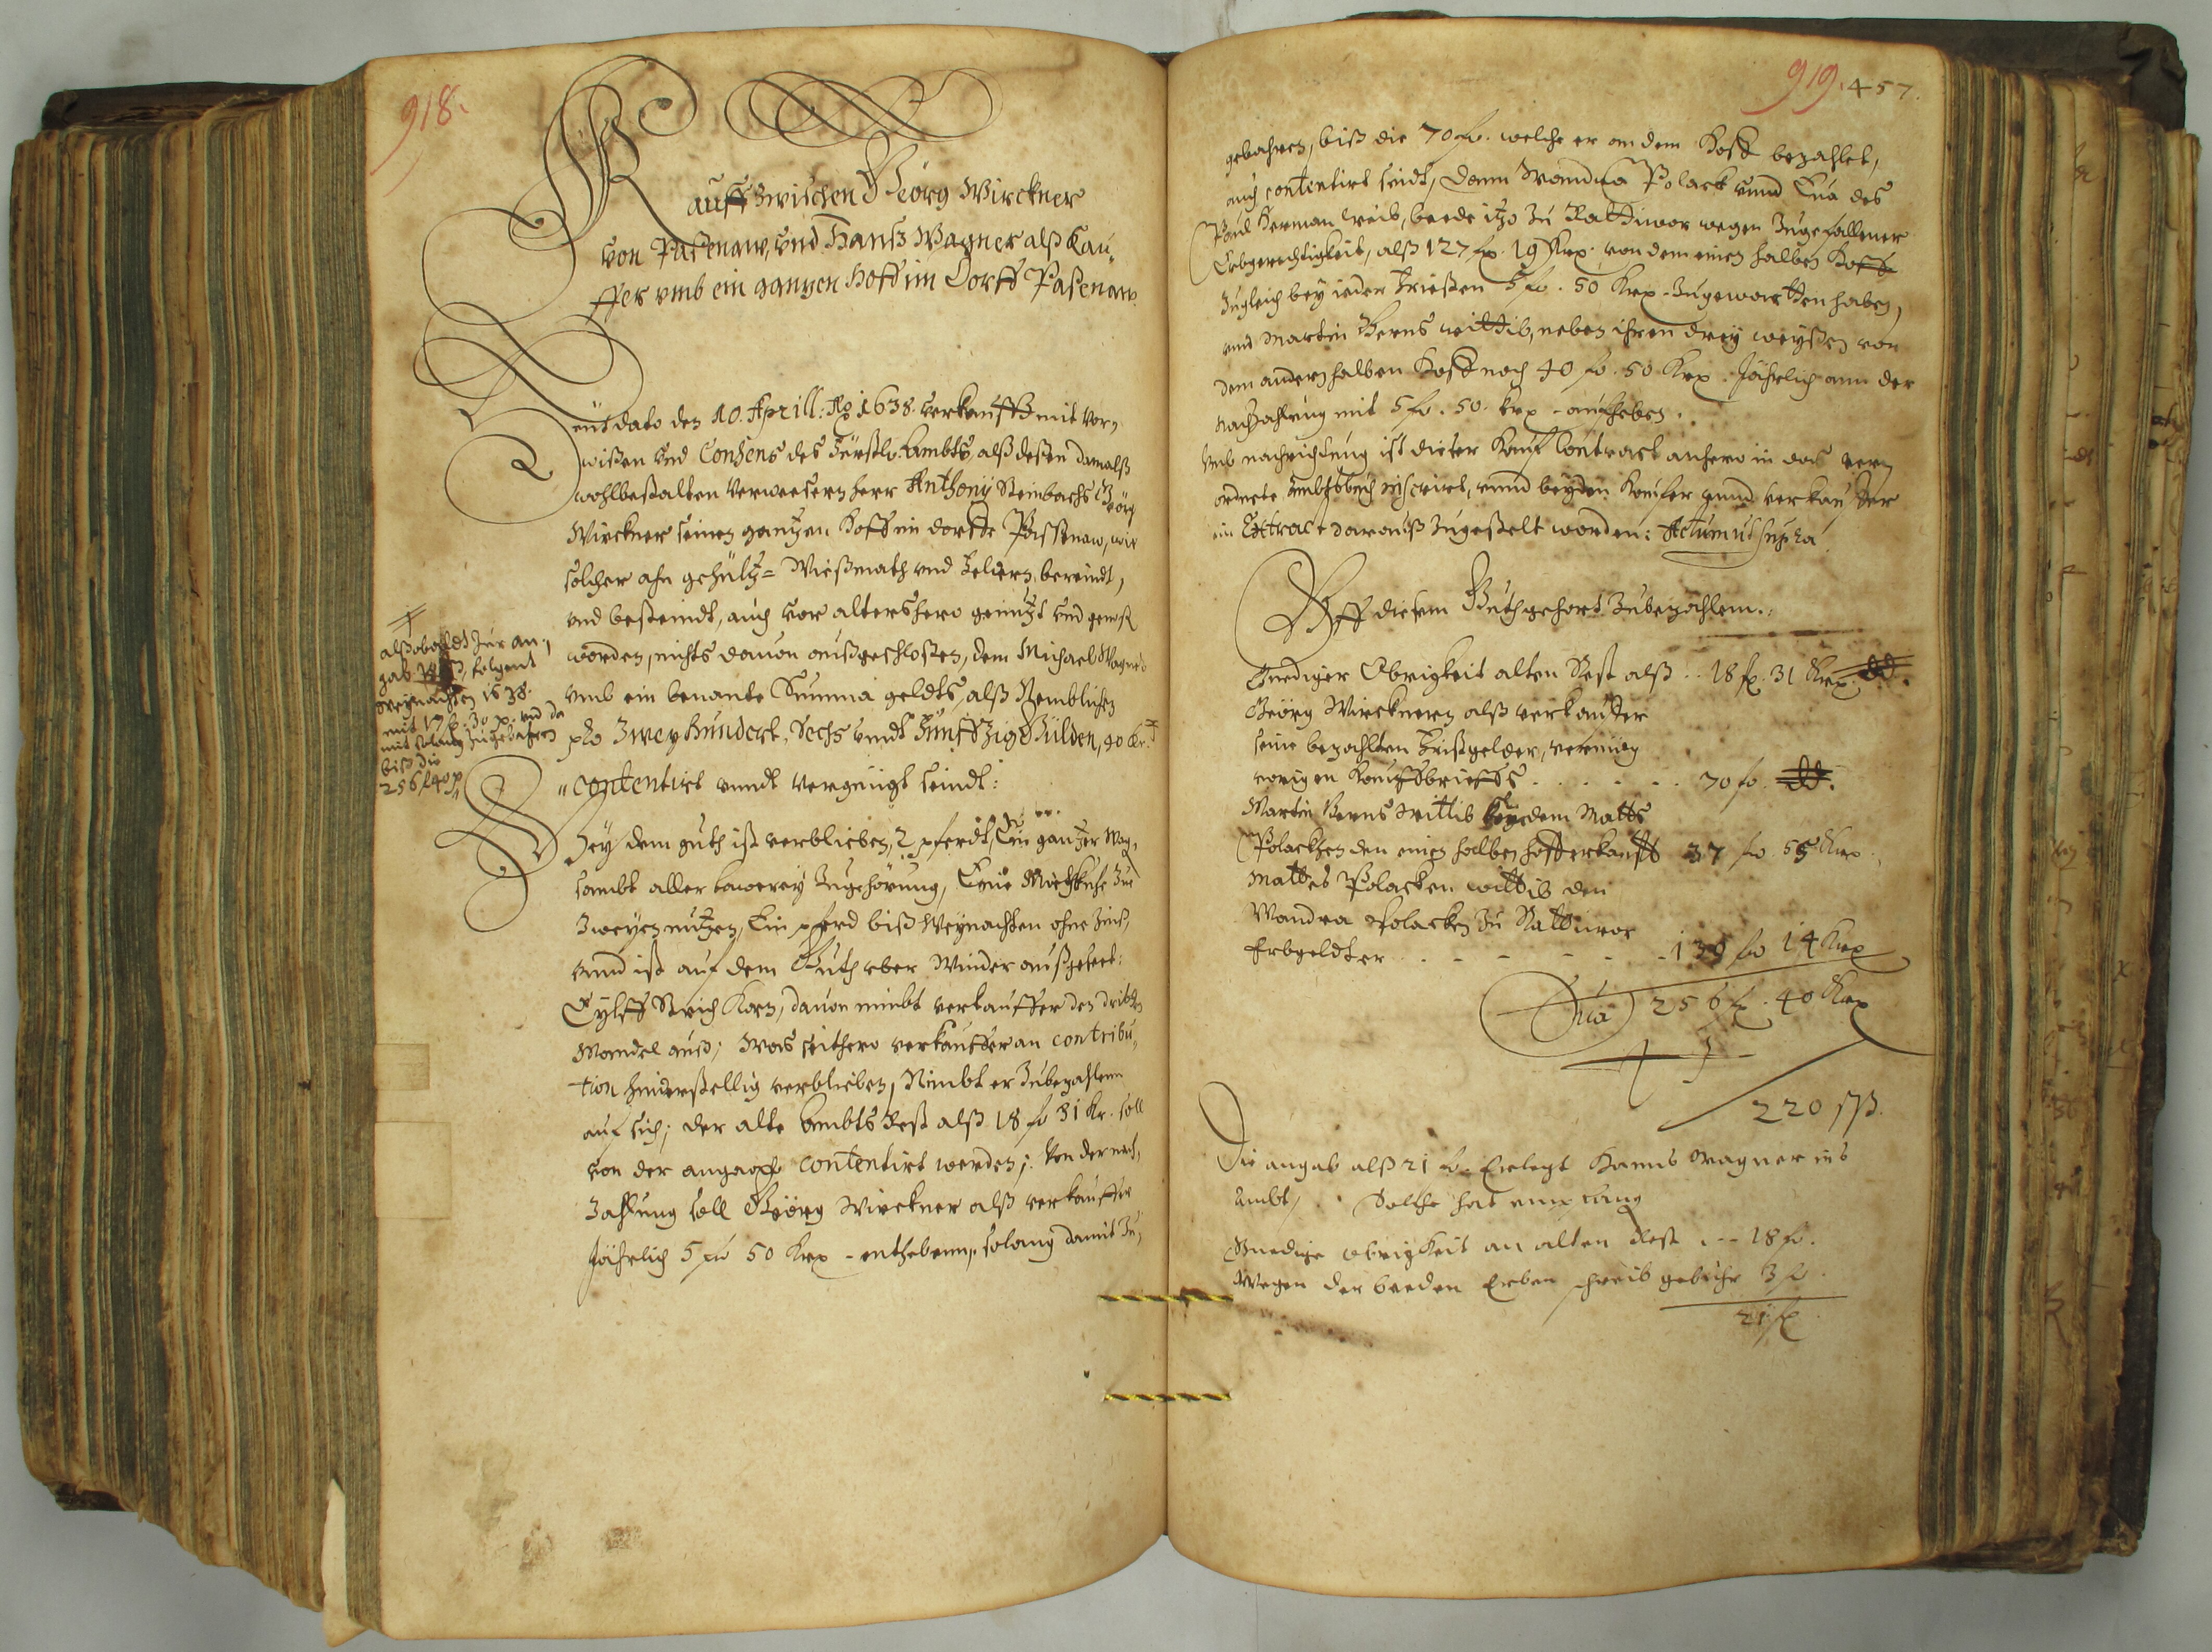 918.
Kauff Zwischen Geörg Wirckner
von Paßenaw, Vnd Hannß Wagner alß Kau„
ffer vmb ein gantzen Hoff im Dorff Paßenaw.
Heüt dato den 10. Aprill: Ao 1638. verkaufft mit vor„
wißen vnd Consens des Fürstl. Ambts, alß deßen damalß
wohlbestalten Verweesern Herr Anthonÿ Steinbachs Geörg
Wirckner seinen gantzen Hoff im dorff Passenaw, wie
solcher ahn gehültz= Wießmath vnd Feldern, bereindt,
vnd besteindt, auch vor altershero genutzt vnd genoß
worden, nichts dauon außgeschloßen, dem Michael Wagner
vmb ein benante Summa geldts, alß Nemblichen
pro Zweÿhundert, Sechs vndt Fünffzig Gülden, 40 Kr.
alßobaldt zur an„
gab
Weÿnachten 1638.
mit 17 fl. 30 x. vnd da
mit solang zugebahren
biß die
256 f 40 x
contentirt vnndt vergnügt seindt:
Beÿ dem guth ist verblieben, 2 pferdt, Ein gantzer Wag,
sambt aller bawereÿ Zugehörung, Eine Küh Zur
Zweÿen nutzen, Ein pferd biß Weÿnachten ohne Zinß,
vnnd ist auf dem Guth vber Winder außgeseet:
Eÿlff Strich Korn, dauon nimbt verkauffer den dritten
Mandel auß; Was seithero verkauffer an contribu„
tion hinderstellig verblieben, Nimbt er Zubezahlenn
auf sich; der alte Ambts Rest alß 18 fl 31 Kr. soll
von der angaab contentirt werden; Von der nach„
Zahlung soll Geörg Wirckner alß verkauffer
Jährlich 5 fl 50 Krx - enthebenn, solang damit Zu„
919. 457.
gebahren, biß die 70 fl. welche er an dem Hoff bezahlet,
auch contentirt seindt, dann Wandra Polack vnnd Eua des
Paul Herman weib, beede itzo Zu Rattiwor wegen Zugefallener
Erbgerechtigkeit, alß 127 fl. 19 Krx. von dem einen halben Hoff
Zugleich beÿ ieder Frießen 5 fl. 50 Krx - Zugewartten haben,
vnd Martin Berns wittib, neben ihren dreÿ weÿßen von
dem andern halben Hoff noch 40 fl. 50 Krx. Jährlich ann der
nachzahlung mit 5 fl. 50. krx - auffheben.
Vmb nachrichtung ist dieser Kauff Contract anhero in das vern
ordnete Ambtsbuch inscrirt, vnnd beÿden Kauffer vnnd verkauffer
ein Extract darauß Zugestelt worden: Actum ut supra
Vff diesem Guth gehort Zubezahlenn.
Gnediger Obrigkeit alten Rest alß .. 18 fl. 31 Krx. dd.
Geörg Wircknern alß verkauffer
seine bezahlten Frißgelder, vermüeg
vorigen Kauffbrieffs . . . . . 70 fl. dd.
Martin Berns Wittib beÿ dem Matts
Polacken den einen halben hoff erkaufft 37 fl 55 Krx.
Mattes Polacken wittib den
Wandra Polacken Zu Rattiwor
Erbgeldter . - - - - - 130 fl 14 Krx
Sua 256 fl. 40 Krx
220 ßß.
Die angab alß 21 fl. Erlegt Hannß Wagner ins
Ambt, Solche hat empfang
Gnedige Obrigkeit an alten Rest . -- 18 fl.
Wegen der beeden Erben schreib gebühr 3 fl.
21 fl